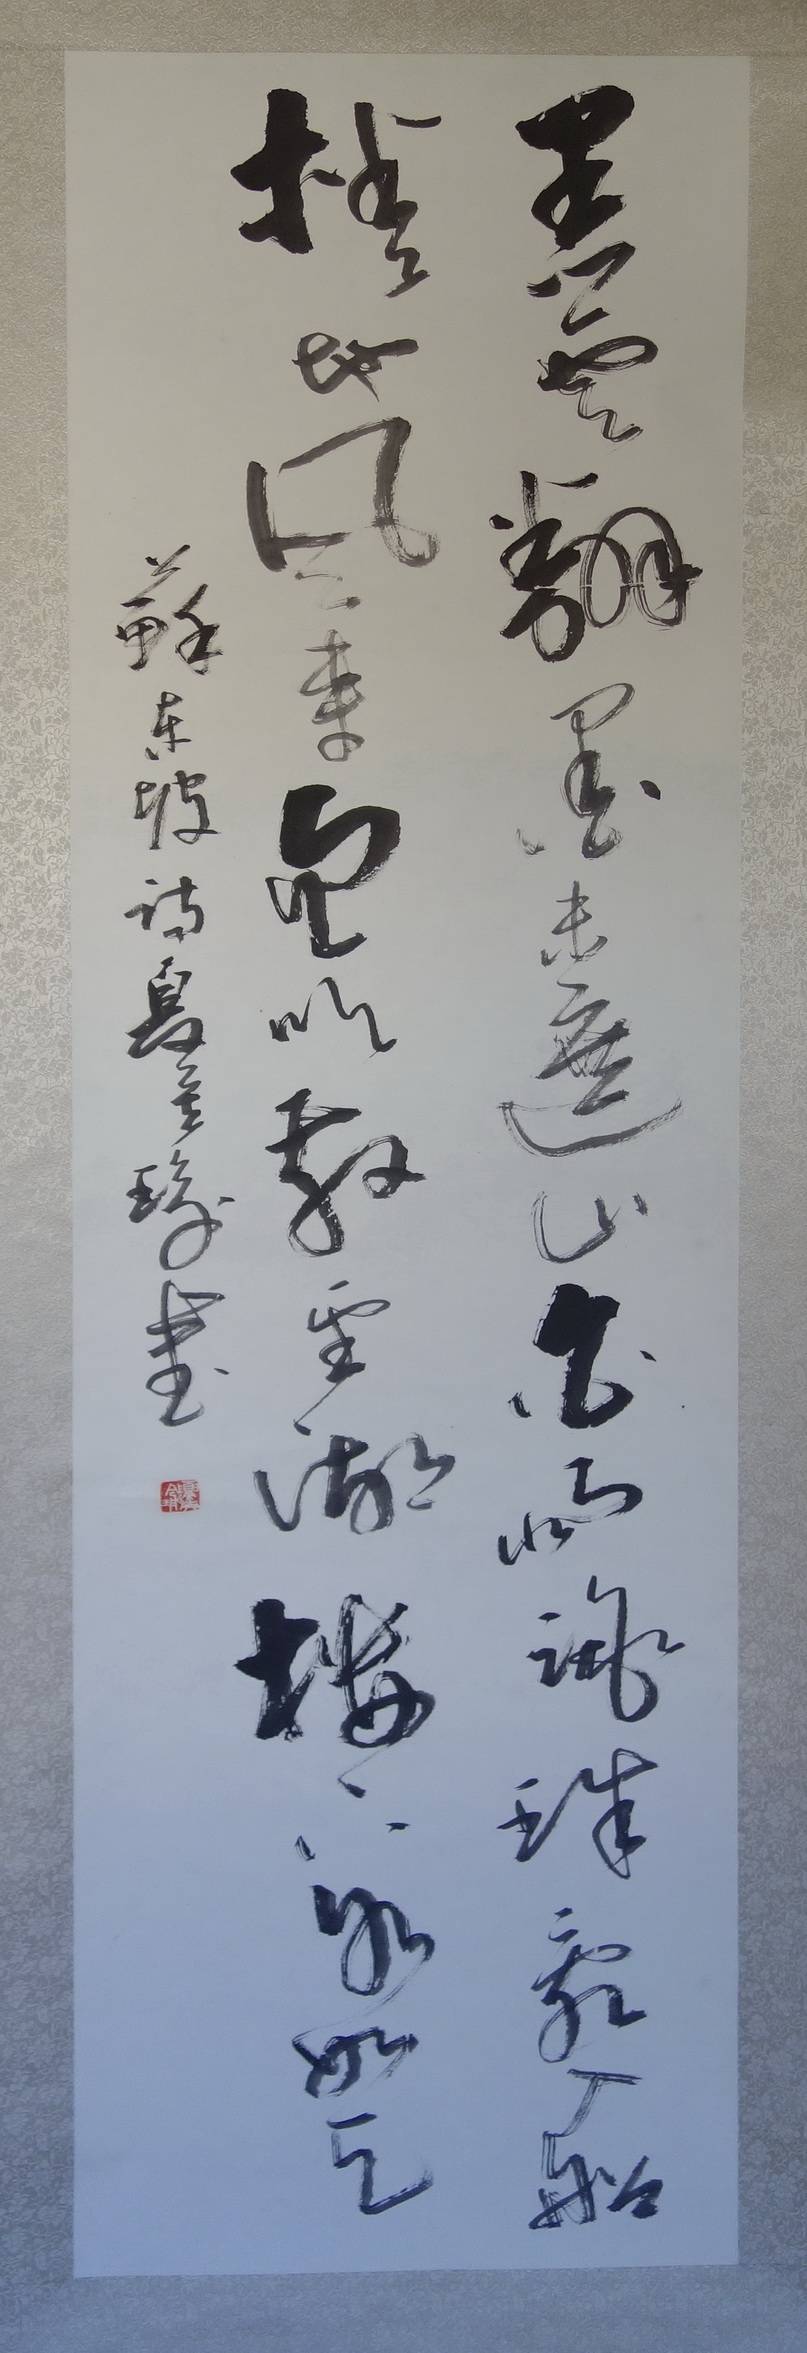 黑雲翻墨未遮山白雨跳珠亂入船
捲地風來忽吹散望湖樓下水如天
蘇東坡詩夏書